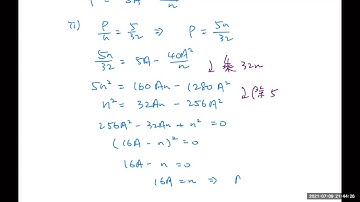 ii) P/n = 5/32 ⇒ P = 5n/32
5n/32 = 5A - 40A²/n
↓ 乘 32n
5n² = 160An - 1280A²
↓ 除 5
n² = 32An - 256A²
256A² - 32An + n² = 0
(16A - n)² = 0
16A - n = 0
16A = n ⇒
2021-07-09 21:44:26